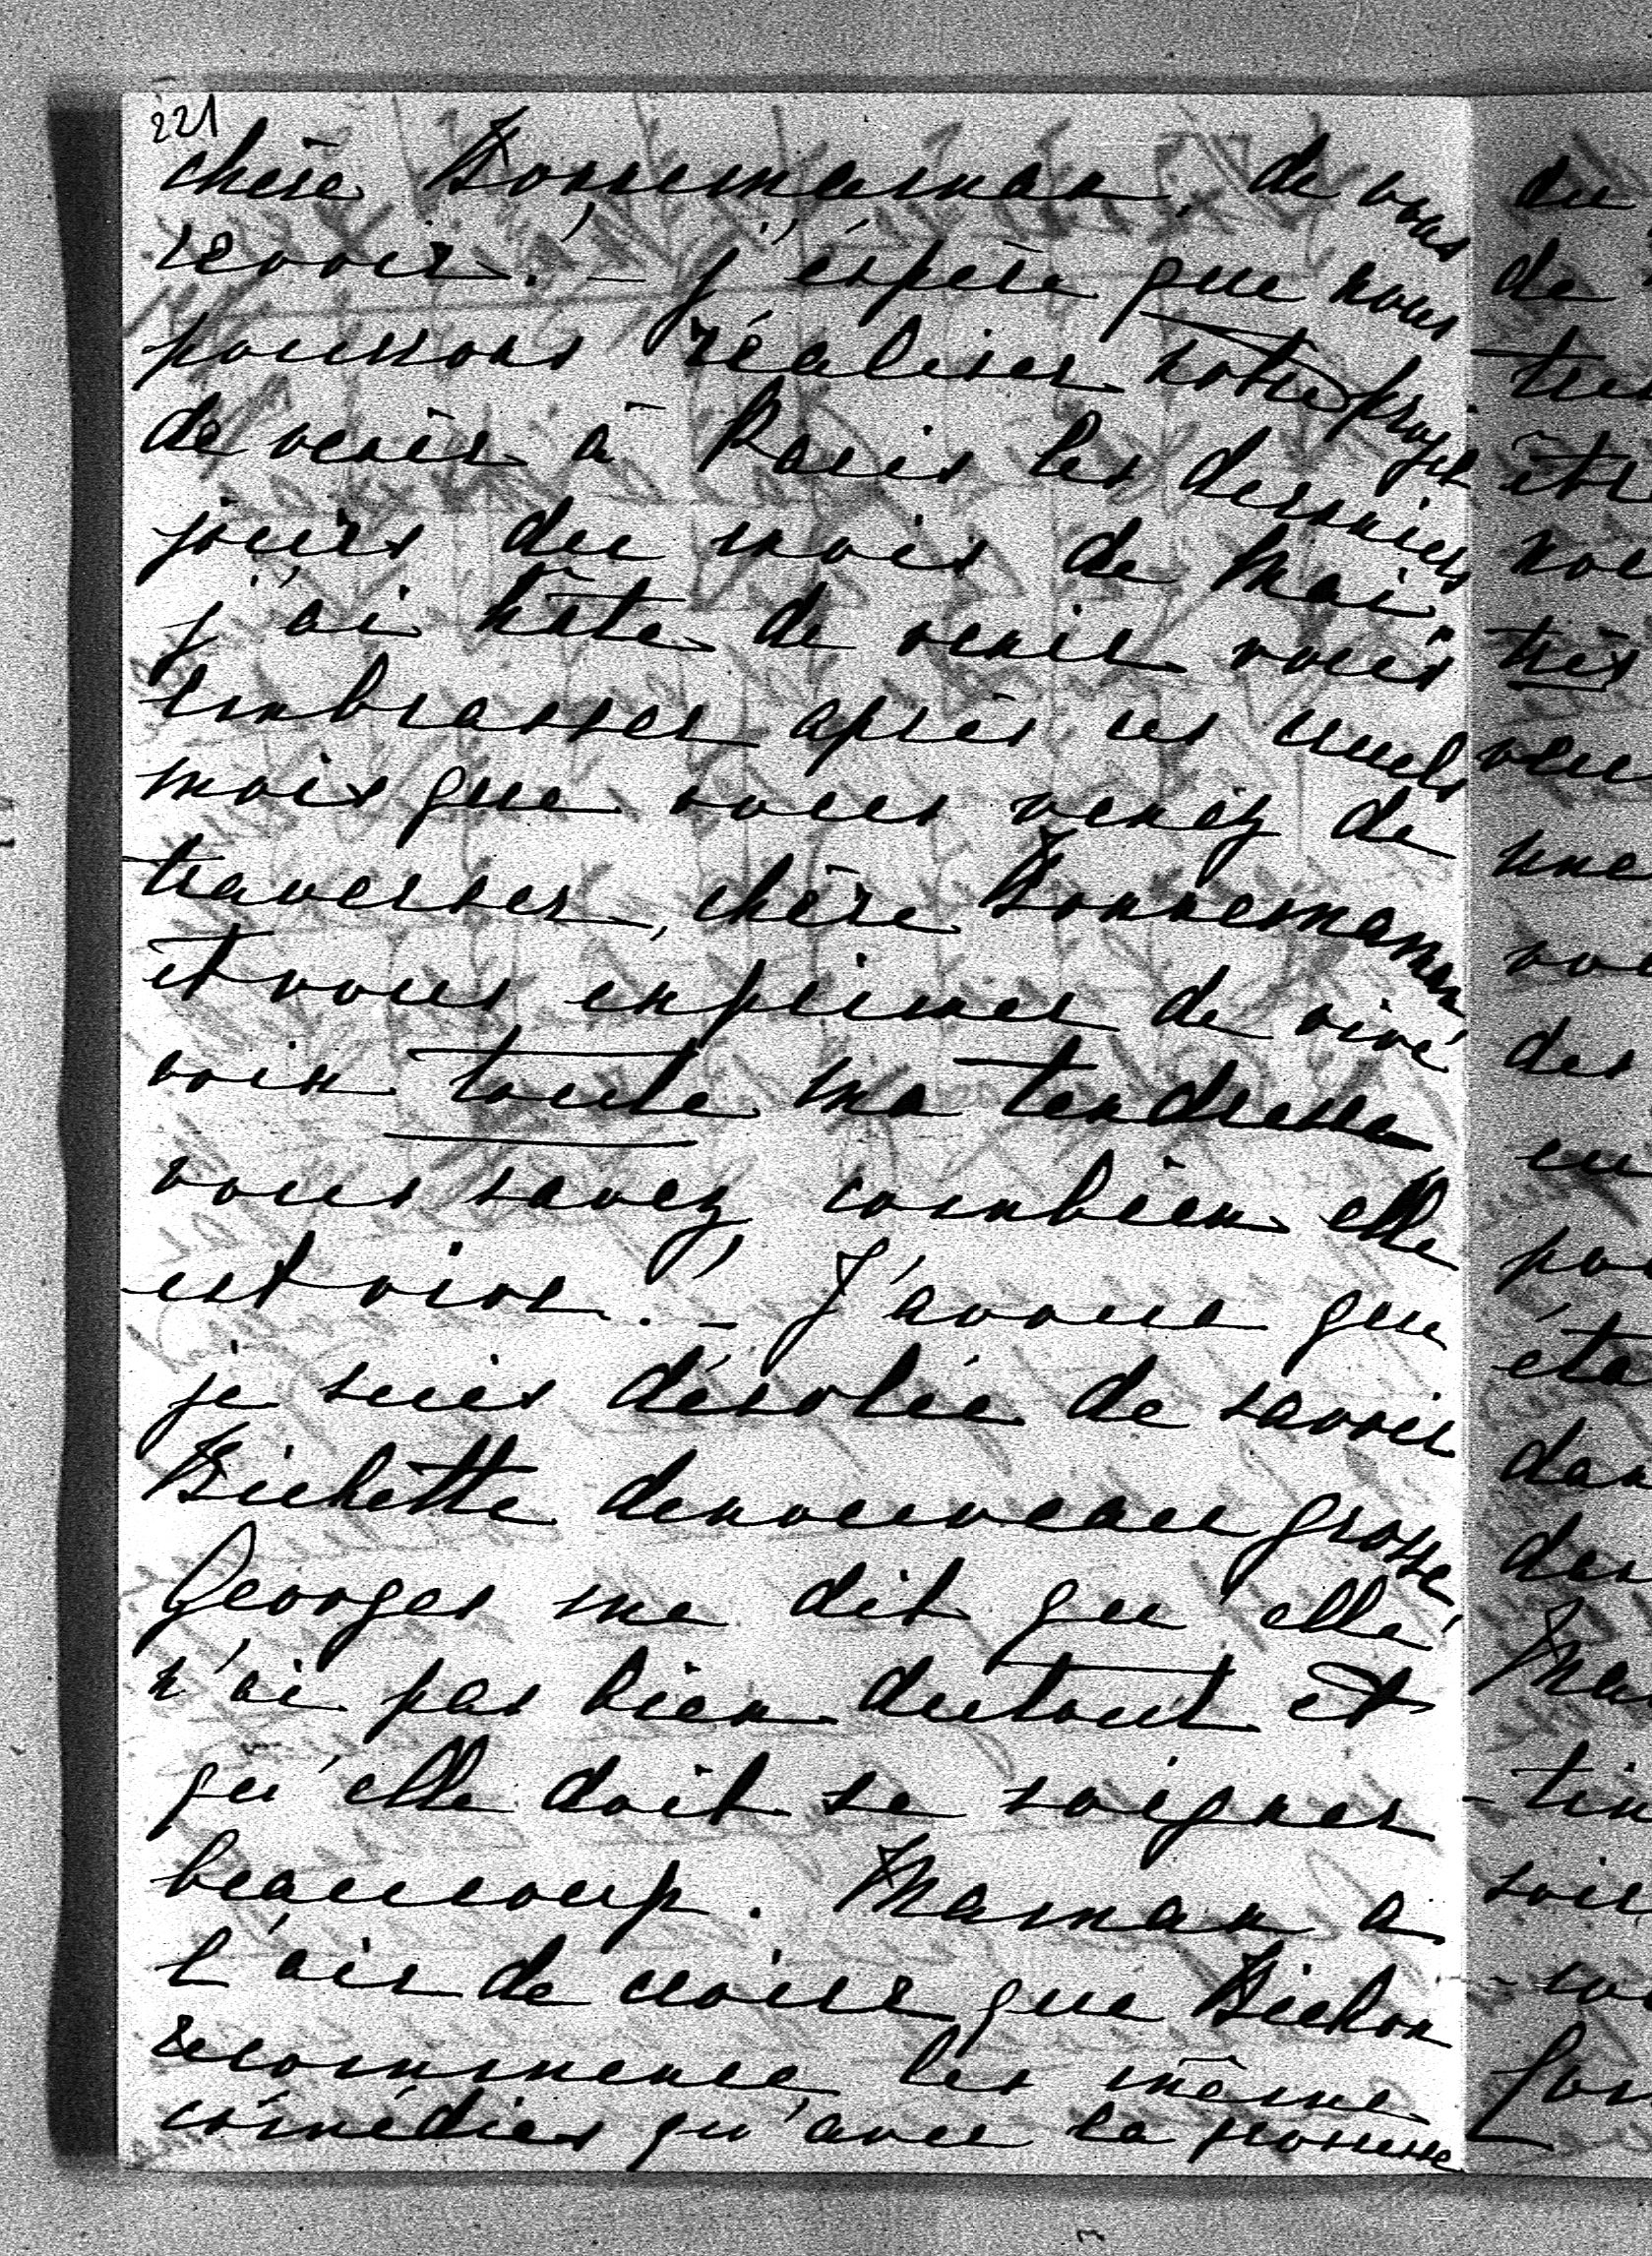 221
chère Bonnemaman, de vous
revoir. – j'éspère que nous
pourrons réaliser notre projet
de venir à Paris les derniers
jours du mois de Mai.
j'ai hâte de venir vous
embrasser après ces cruels
mois que vous venez de
traverser, chère Bonnemaman
et vous exprimer de vive
voix toute ma tendresse
vous savez combien elle
est vive. – J'avoue que
je suis désolée de savoir
Bichette denouveau grosse,
Georges me dit qu'elle
n'ai pas bien dutout et
qu'elle doit se soigner
beaucoup. Maman a
l'air de croire que Bichon
recommence les même
comédies qu'avec la grosesse
du
de
très
une
des